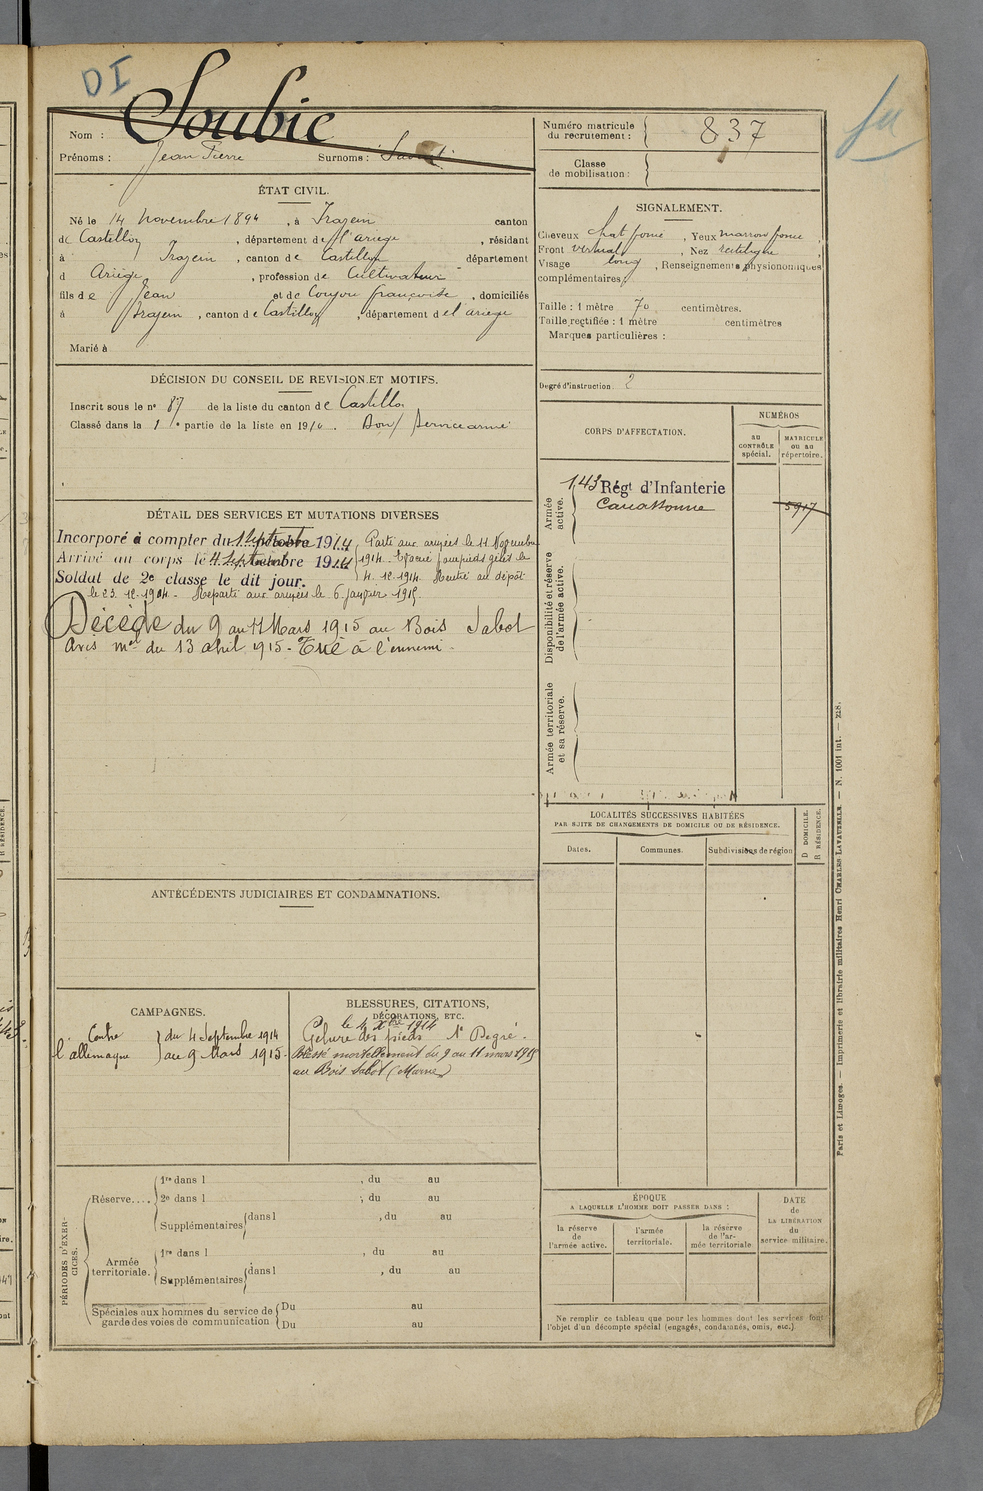 DI
Soubie
Nom :
Prénoms : Jean Pierre Surnoms :
ÉTAT CIVIL.
Né le 14 Novembre 1894, à Irazein canton
de Castillon, département de l'ariege, résidant
à Irazein, canton de Castillon département
d Ariège, profession de Cultivateur
fils de Jean et de Coujou françoise, domiciliés
à Irazein, canton de Castillon, département de l ariege
Marié à
DÉCISION DU CONSEIL DE REVISION ET MOTIFS.
Inscrit sous le n° 87 de la liste du canton de Castillon
Classé dans la 1e partie de la liste en 191 . Bon service armé
DÉTAIL DES SERVICES ET MUTATIONS DIVERSES
Incorporé à compter du 1 Septembre 1914 Parti aux armées le 11 Novembre
Arrivé au corps le 4 Septembre 1914 1914. Evacué pieds gelés le
Soldat de 2e classe le dit jour. 4. 12. 1914. Rentré au dépôt
le 23. 12. 1914. Reparti aux armées le 6 janvier 1915.
Décédé du 9 au 11 Mars 1915 au Bois Sabot
Avis mel du 13 avril 1915 - Tué à l'ennemi.
ANTÉCÉDENTS JUDICIAIRES ET CONDAMNATIONS.
CAMPAGNES.
Contre l'allemagne } du 4 Septembre 1914
au 9 Mars 1915.
BLESSURES, CITATIONS,
DÉCORATIONS, ETC.
le 4 Xbre 1914
Gelure des pieds 1r Degré.
Blessé mortellement du 9 au 11 mars 1915
au Bois Sabot (Marne)
PÉRIODES D'EXERCICES.
Réserve....
1re dans l , du au
2e dans l , du au
Supplémentaires dans l , du au
Armée territoriale.
1re dans l , du au
Supplémentaires dans l , du au
Spéciales aux hommes du service de garde des voies de communication
Du au
Du au
Numéro matricule du recrutement : 837
Classe de mobilisation :
SIGNALEMENT.
Cheveux chat foncé, Yeux marron foncé,
Front vertical, Nez rectiligne,
Visage long, Renseignements physionomiques
complémentaires :
Taille : 1 mètre 70 centimètres.
Taille rectifiée : 1 mètre centimètres
Marques particulières :
Degré d'instruction : 2
CORPS D'AFFECTATION.
NUMÉROS
au CONTRÔLE spécial.
MATRICULE ou au répertoire.
Armée active.
143 Régt d'Infanterie
Carcassonne
5917
Disponibilité et réserve de l'armée active.
Armée territoriale et sa réserve.
LOCALITÉS SUCCESSIVES HABITÉES
PAR SUITE DE CHANGEMENTS DE DOMICILE OU DE RÉSIDENCE.
Dates. Communes. Subdivisions de région
D DOMICILE.
R RÉSIDENCE.
ÉPOQUE
A LAQUELLE L'HOMME DOIT PASSER DANS :
la réserve de l'armée active.
l'armée territoriale.
la réserve de l'armée territoriale
DATE de LA LIBÉRATION du service militaire.
Ne remplir ce tableau que pour les hommes dont les services font
l'objet d'un décompte spécial (engagés, condamnés, omis, etc.).
Paris et Limoges. — Imprimerie et librairie militaires Henri CHARLES-LAVAUZELLE. — N. 1001 int. — 728.